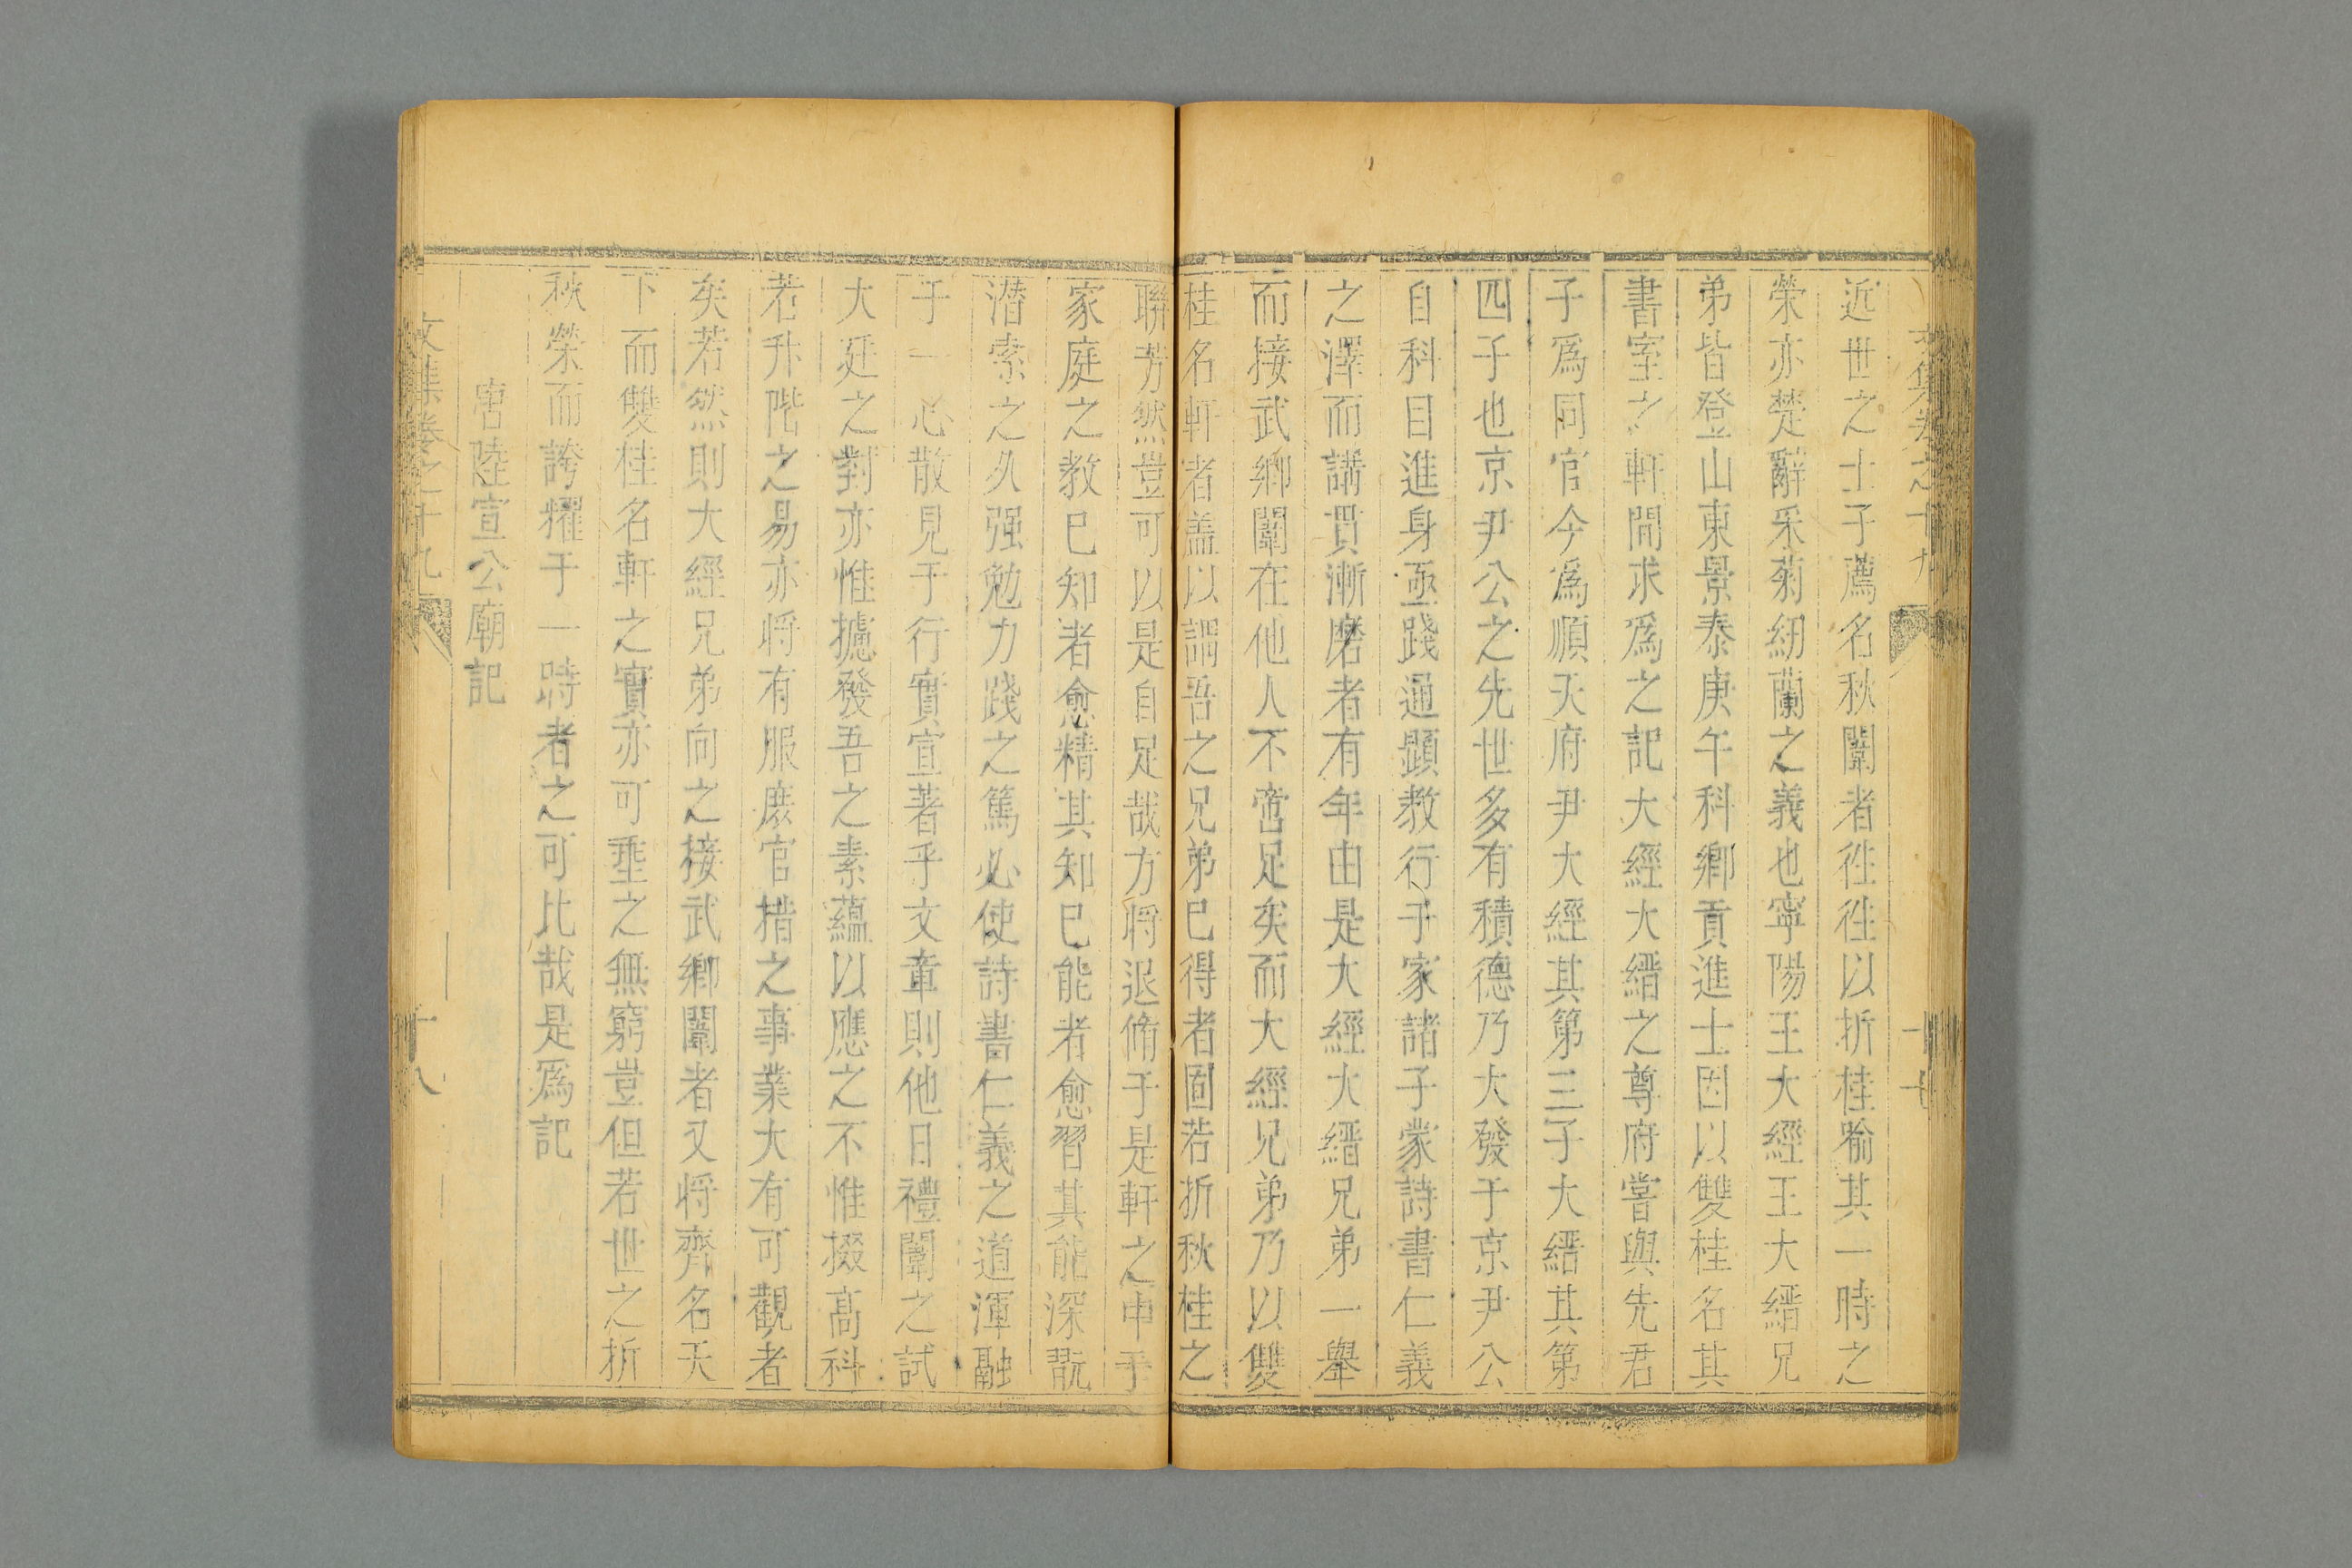 文集卷之十九
十七
近世之士子薦名秋闈者徃徃以折桂喻其一時之
榮亦楚辭采菊紉蘭之義也寧陽王大經王大縉兄
弟皆登山東景泰庚午科鄉貢進士因以雙桂名其
書室之軒間求爲之記大經大縉之尊府嘗與先君
子爲同官今爲順天府尹大經其第三子大縉其第
四子也京尹公之先世多有積德乃大發于京尹公
自科目進身亟踐通顯教行于家諸子蒙詩書仁義
之澤而講貫漸磨者有年由是大經大縉兄弟一舉
而接武鄉闈在他人不啻足矣而大經兄弟乃以雙
桂名軒者盖以謂吾之兄弟已得者固若折秋桂之
聯芳然豈可以是自足哉方將退脩于是軒之中乎
家庭之教已知者愈精其知已能者愈習其能深翫
潜索之久强勉力踐之篤必使詩書仁義之道渾融
于一心散見于行實宣著乎文章則他日禮闈之試
大廷之對亦惟攄發吾之素蘊以應之不惟掇高科
若升階之易亦将有服庶官措之事業大有可觀者
矣若然則大經兄弟向之接武鄉闈者又将齊名天
下而雙桂名軒之實亦可垂之無窮豈但若世之折
秋榮而誇耀于一時者之可比哉是爲記
陸宣公廟記
文集卷之十九
十八